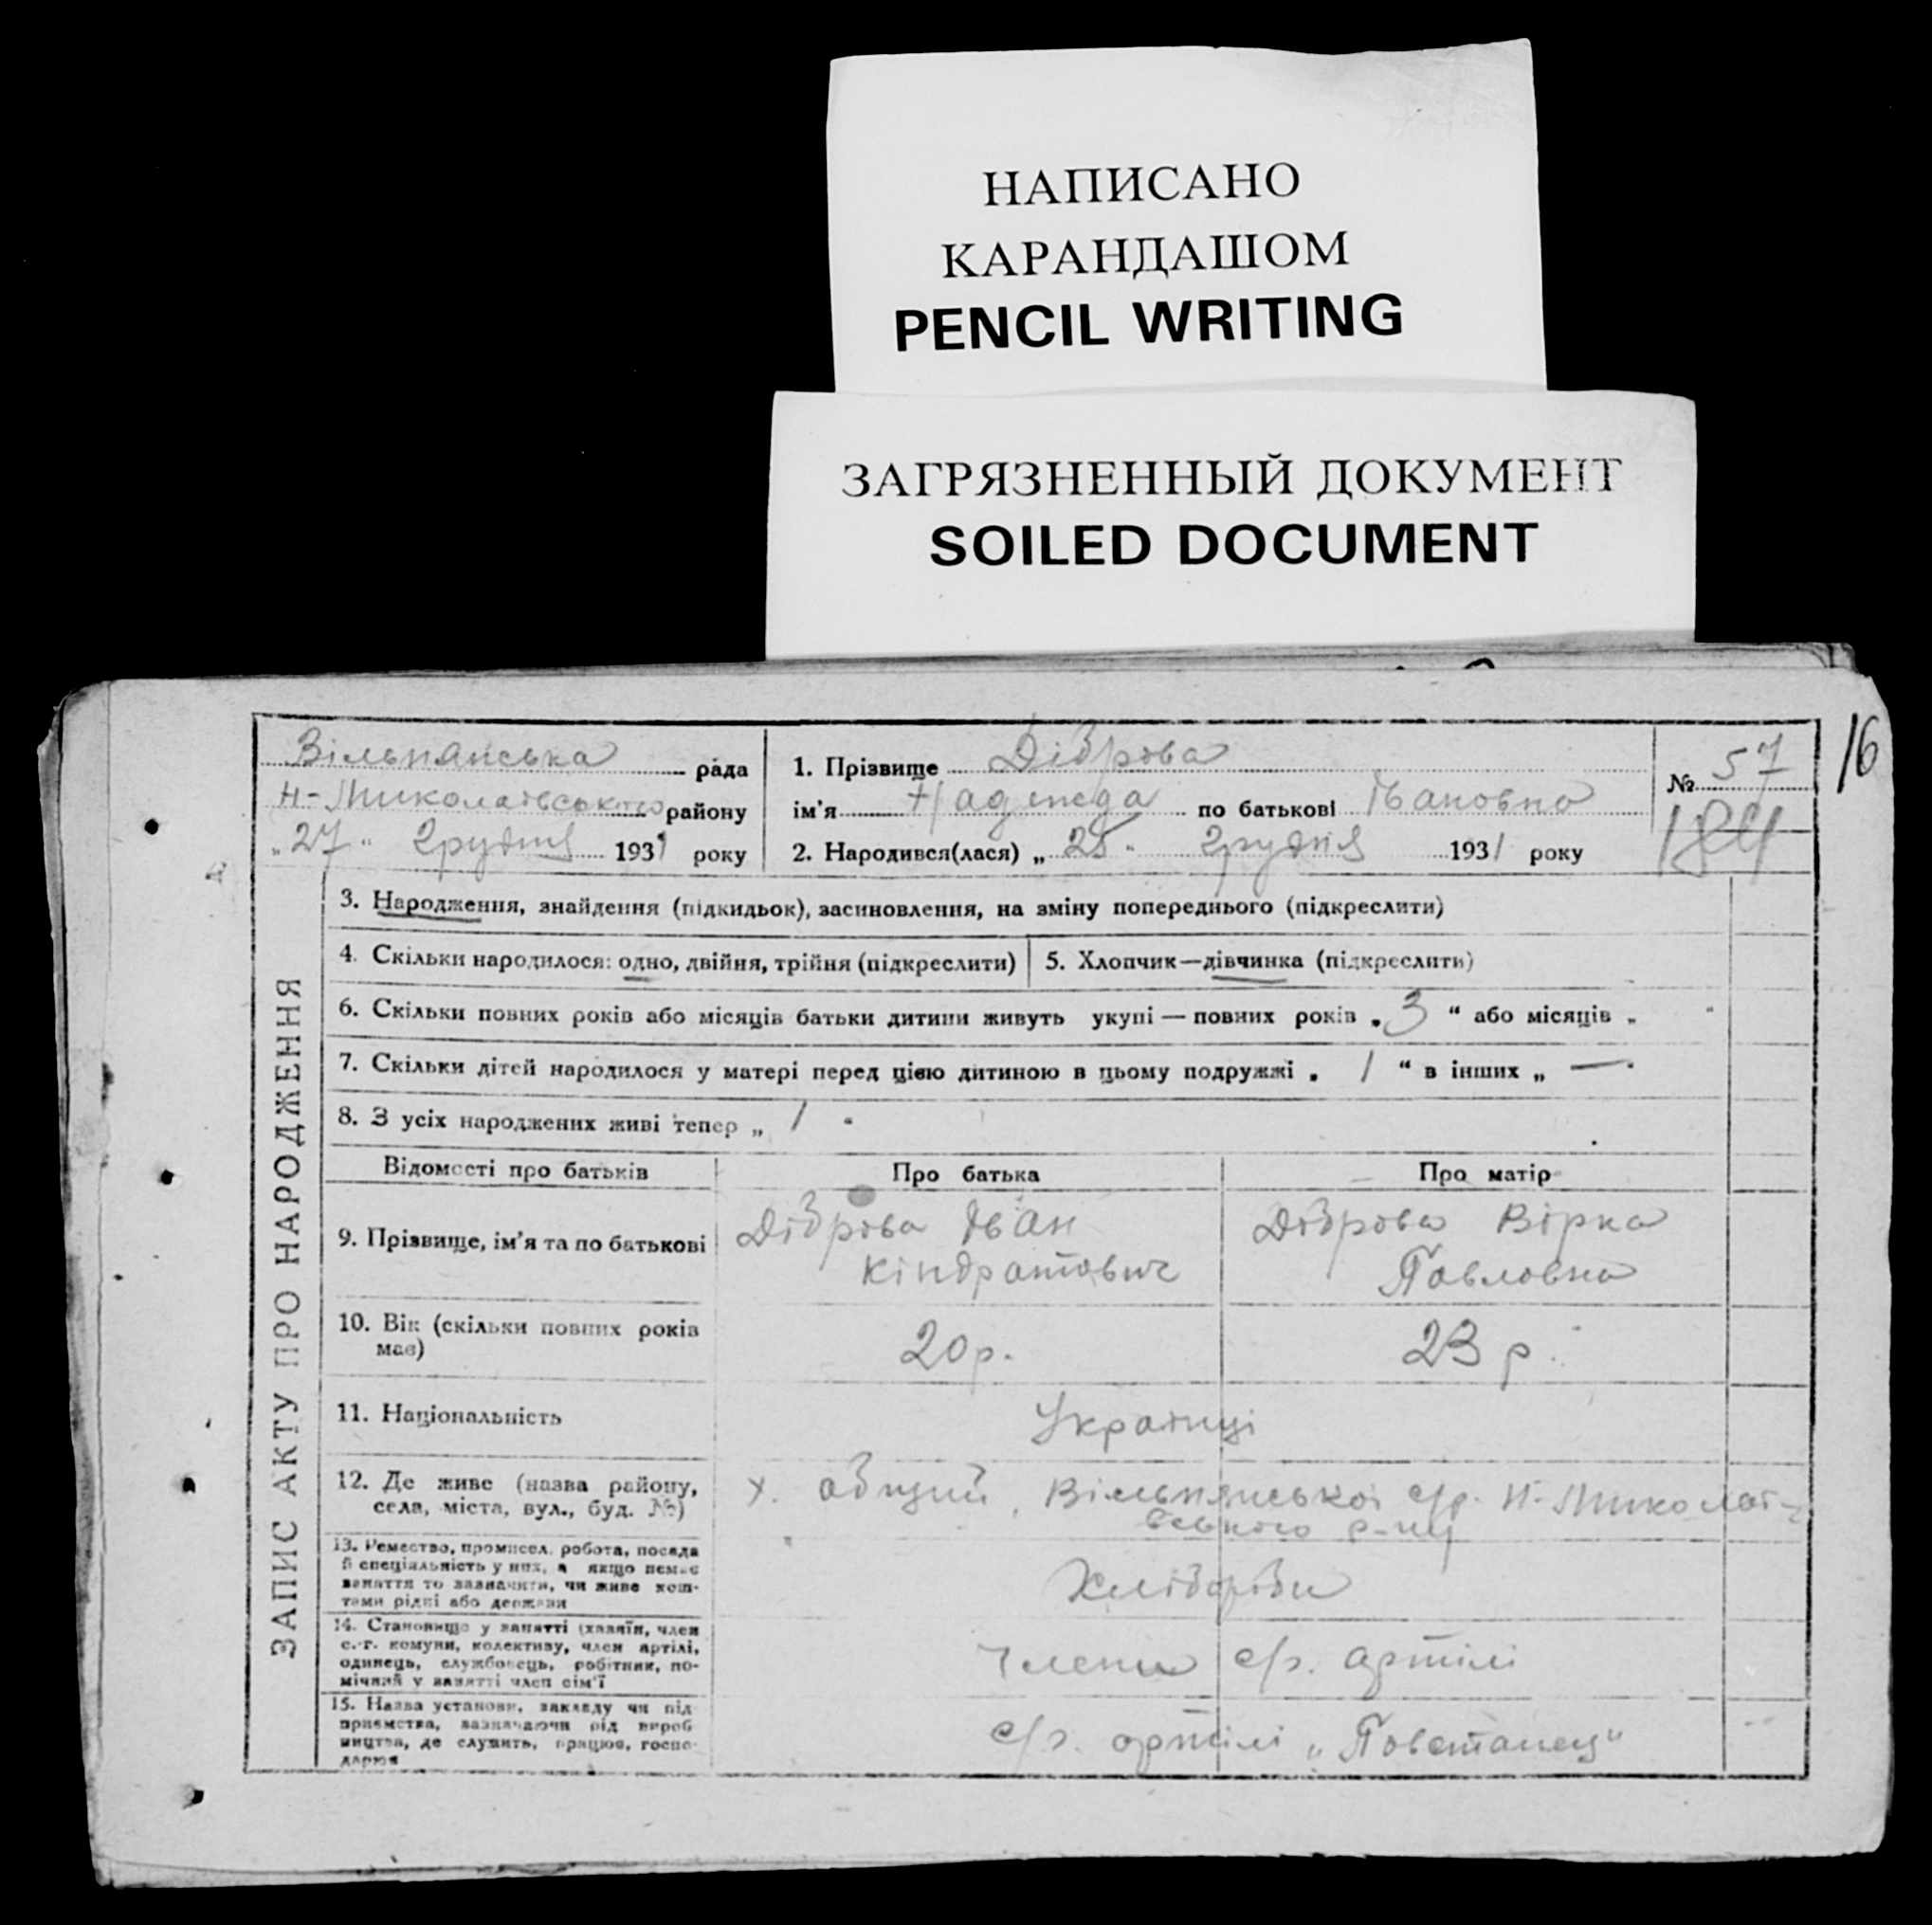 НАПИСАНО
КАРАНДАШОМ
PENCIL WRITING
ЗАГРЯЗНЕННЫЙ ДОКУМЕНТ
SOILED DOCUMENT
16
Вільнянська рада
Н-Миколаївського району
„27“ Грудня 1931 року
1. Прізвище Діброва
ім'я Надежда по батькові Івановна
2. Народився(лася) „25“ Грудня 1931 року
№ 57
184
ЗАПИС АКТУ ПРО НАРОДЖЕННЯ
3. Народження, знайдення (підкидьок), засиновлення, на зміну попереднього (підкреслити)
4. Скільки народилося: одно, двійня, трійня (підкреслити)
5. Хлопчик—дівчинка (підкреслити)
6. Скільки повних років або місяців батьки дитини живуть укупі — повних років „3“ або місяців „ “
7. Скільки дітей народилося у матері перед цією дитиною в цьому подружжі „1“ в інших „—“
8. З усіх народжених живі тепер „1“
Відомості про батьків Про батька Про матір
9. Прізвище, ім'я та по батькові Діброва Іван Діброва Вірка
Кіндратович Павловна
10. Вік (скільки повних років 20р. 23 р.
має)
11. Національність Українці
12. Де живе (назва району, х. общий, Вільнянської с/р. Н-Миколаї-
села, міста, вул., буд. №) вського р-ну
13. Ремество, промисел, робота, посада
й спеціальність у них, а якщо немає
заняття то зазначити, чи живе кош-
тами рідні або держави
Хлібороби
14. Становище у занятті (хазяїн, член
с.-г. комуни, колективу, член артілі,
одинець, службовець, робітник, по-
мічний у занятті член сім'ї
Члени с/г. артілі
15. Назва установи, закладу чи під-
приємства, зазначаючи рід вироб-
ництва, де служить, працює, госпо-
дарює
с/г. артілі „Повстанец“